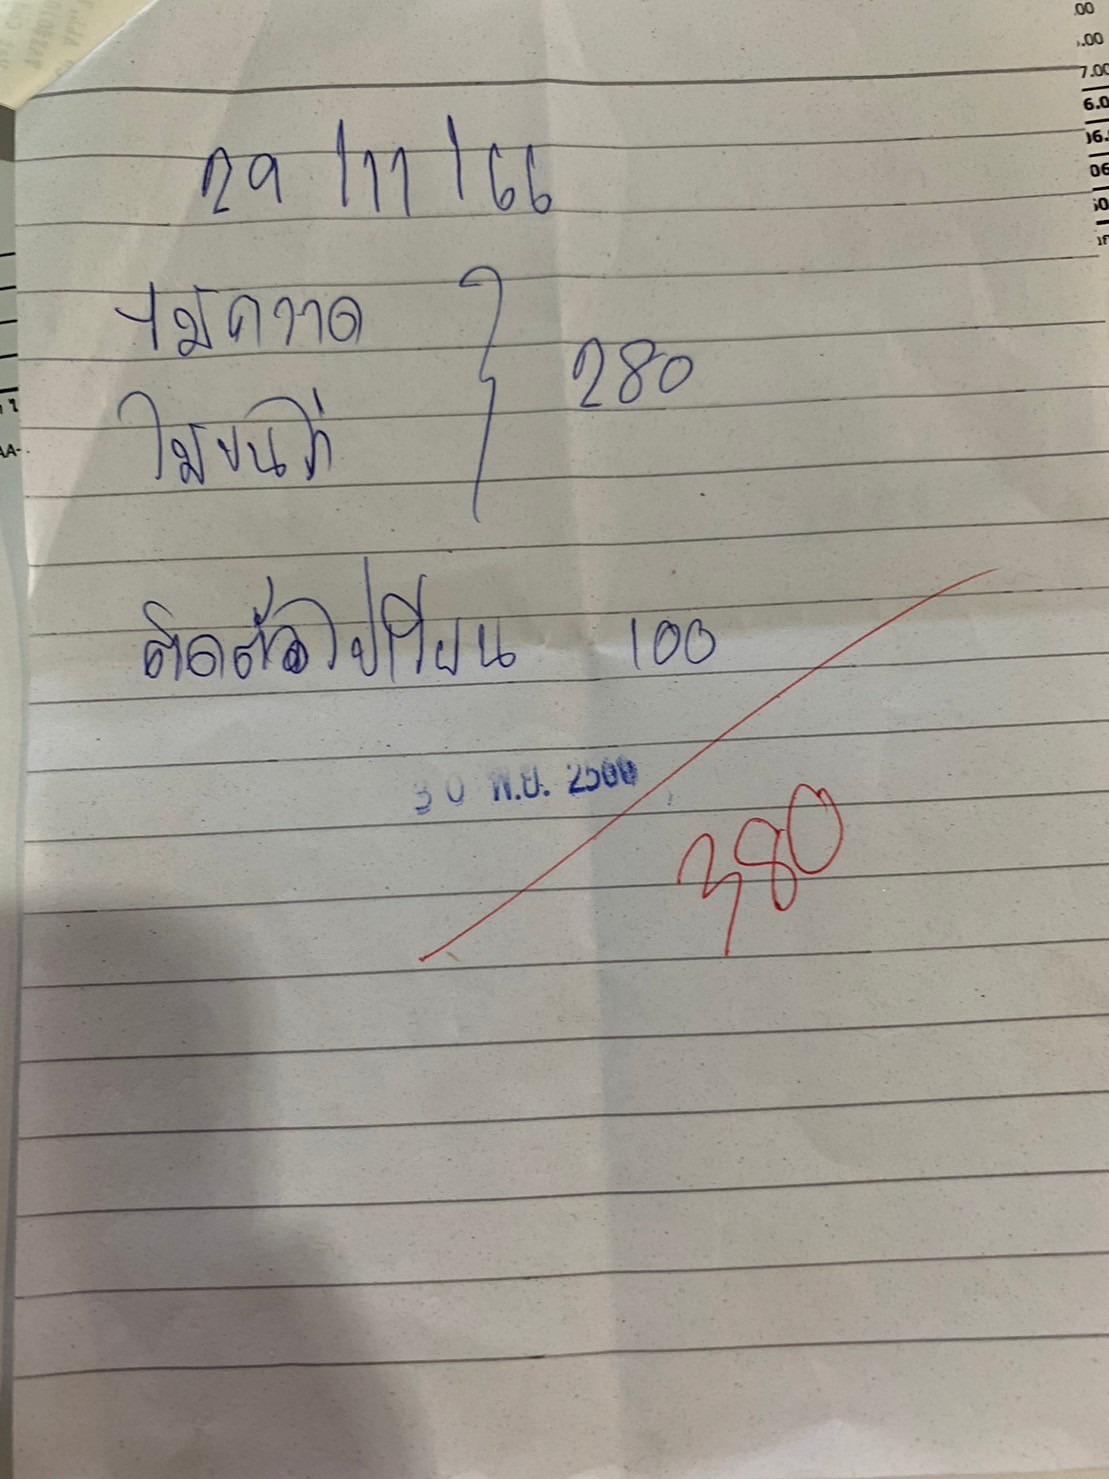 29/11/66
ไม้กวาด
ไม้ขนไก่
280
ติดตั้ว 100
30 พ.ย. 25
380
.00
.00
7.00
6.0
06.
06